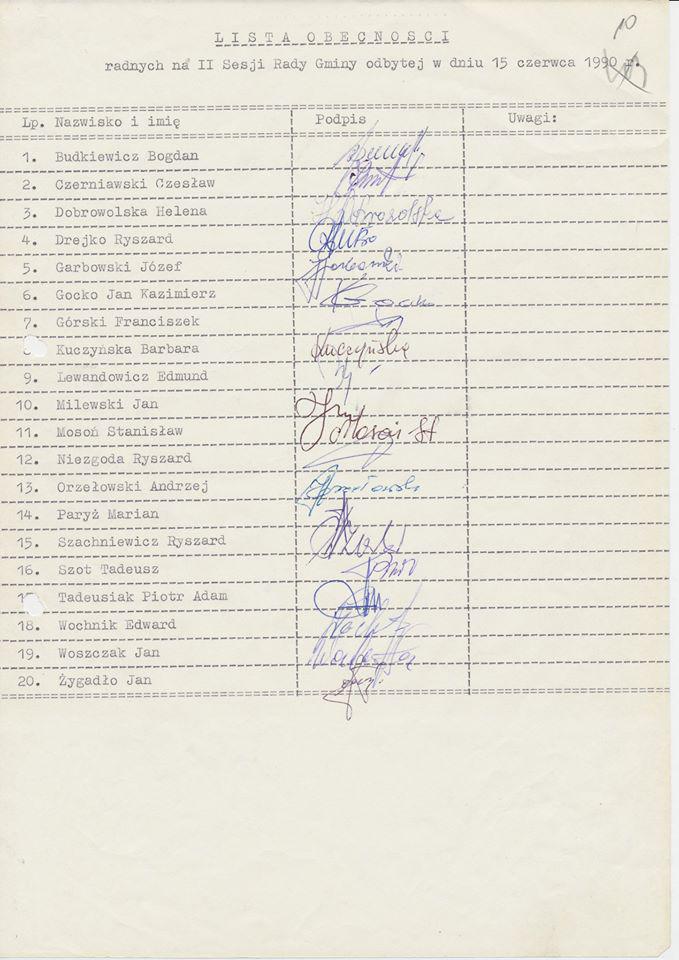 10
LISTA OBECNOSCI
radnych na II Sesji Rady Gminy odbytej w dniu 15 czerwca 1990 r.
Lp. Nazwisko i imię Podpis Uwagi:
1. Budkiewicz Bogdan
2. Czerniawski Czesław
3. Dobrowolska Helena
4. Drejko Ryszard
5. Garbowski Józef
6. Gocko Jan Kazimierz
7. Górski Franciszek
Kuczyńska Barbara Kuczyńska
9. Lewandowicz Edmund
10. Milewski Jan
11. Mosoń Stanisław
12. Niezgoda Ryszard
13. Orzełowski Andrzej
14. Paryż Marian
15. Szachniewicz Ryszard
16. Szot Tadeusz
Tadeusiak Piotr Adam
18. Wochnik Edward
19. Woszczak Jan
20. Żygadło Jan